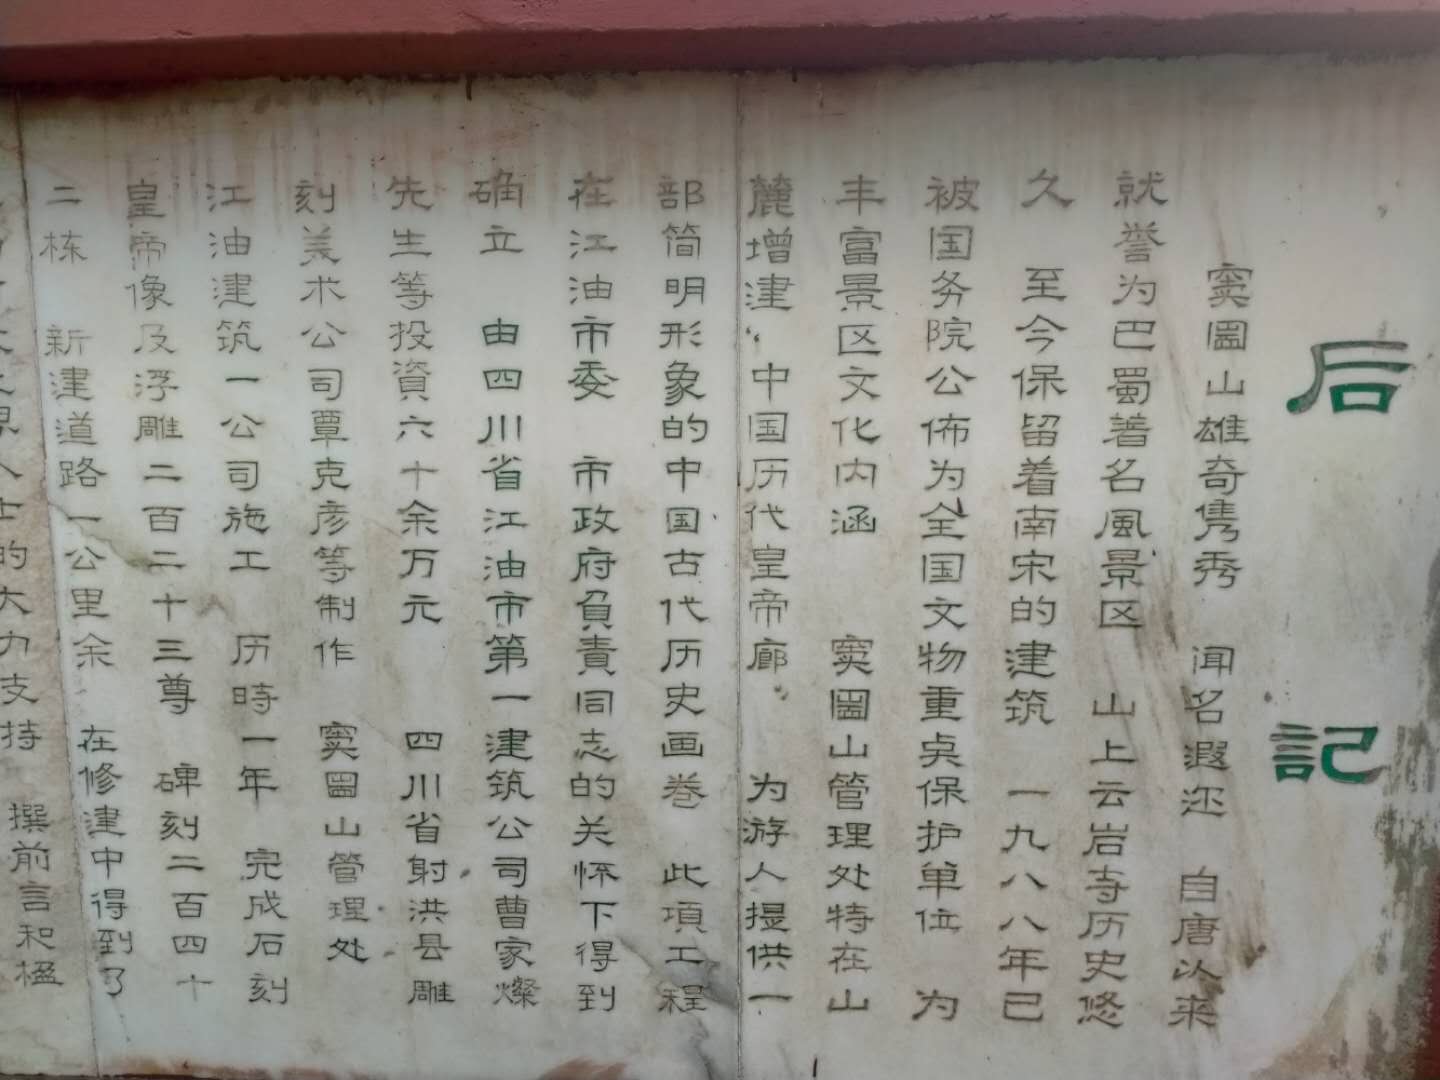 后記
窦圌山雄奇隽秀 闻名遐迩 自唐以来
就誉为巴蜀著名風景区 山上云岩寺历史悠
久 至今保留着南宋的建筑 一九八八年已
被国务院公佈为全国文物重点保护单位 为
丰富景区文化内涵 窦圌山管理处特在山
麓增建“中国历代皇帝廊” 为游人提供一
部简明形象的中国古代历史画卷 此項工程
在江油市委 市政府負責同志的关怀下得到
确立 由四川省江油市第一建筑公司曹家燦
先生等投資六十余万元 四川省射洪县雕
刻美术公司覃克彦等制作 窦圌山管理处
江油建筑一公司施工 历時一年 完成石刻
皇帝像及浮雕二百二十三尊 碑刻二百四十
二栋 新建道路一公里余 在修建中得到了
界人士的大力支持 撰前言和楹